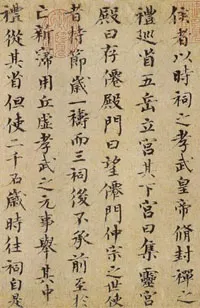 侯者以時祠之孝武皇帝脩封禪之
禮巡省五岳立宮其下宮曰集靈宮
殿曰存僊殿門曰望僊門仲宗之世使
者持節歲一禱而三祠後不承前至於
亡新寖用丘虛孝武之元事舉其中
禮從其省但使二千石歲時往祠自是